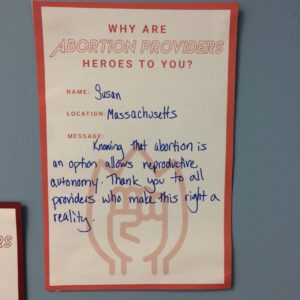 WHY ARE
ABORTION PROVIDERS
HEROES TO YOU?
NAME: Susan
LOCATION: Massachusetts
MESSAGE:
Knowing that abortion is
an option allows reproductive
autonomy. Thank you to all
providers who make this right a
reality.
RS